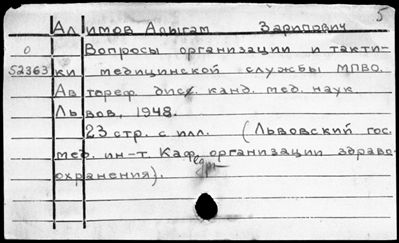 5
Алимов Алыгам Зарипович
О Вопросы организации и такти-
52363 ки медицинской службы МПВО.
Автореф. дисс. канд. мед. наук
Львов, 1948.
23 стр. с илл. (Львовский гос.
мед. ин-т. Каф. организации здраво-
охранения).